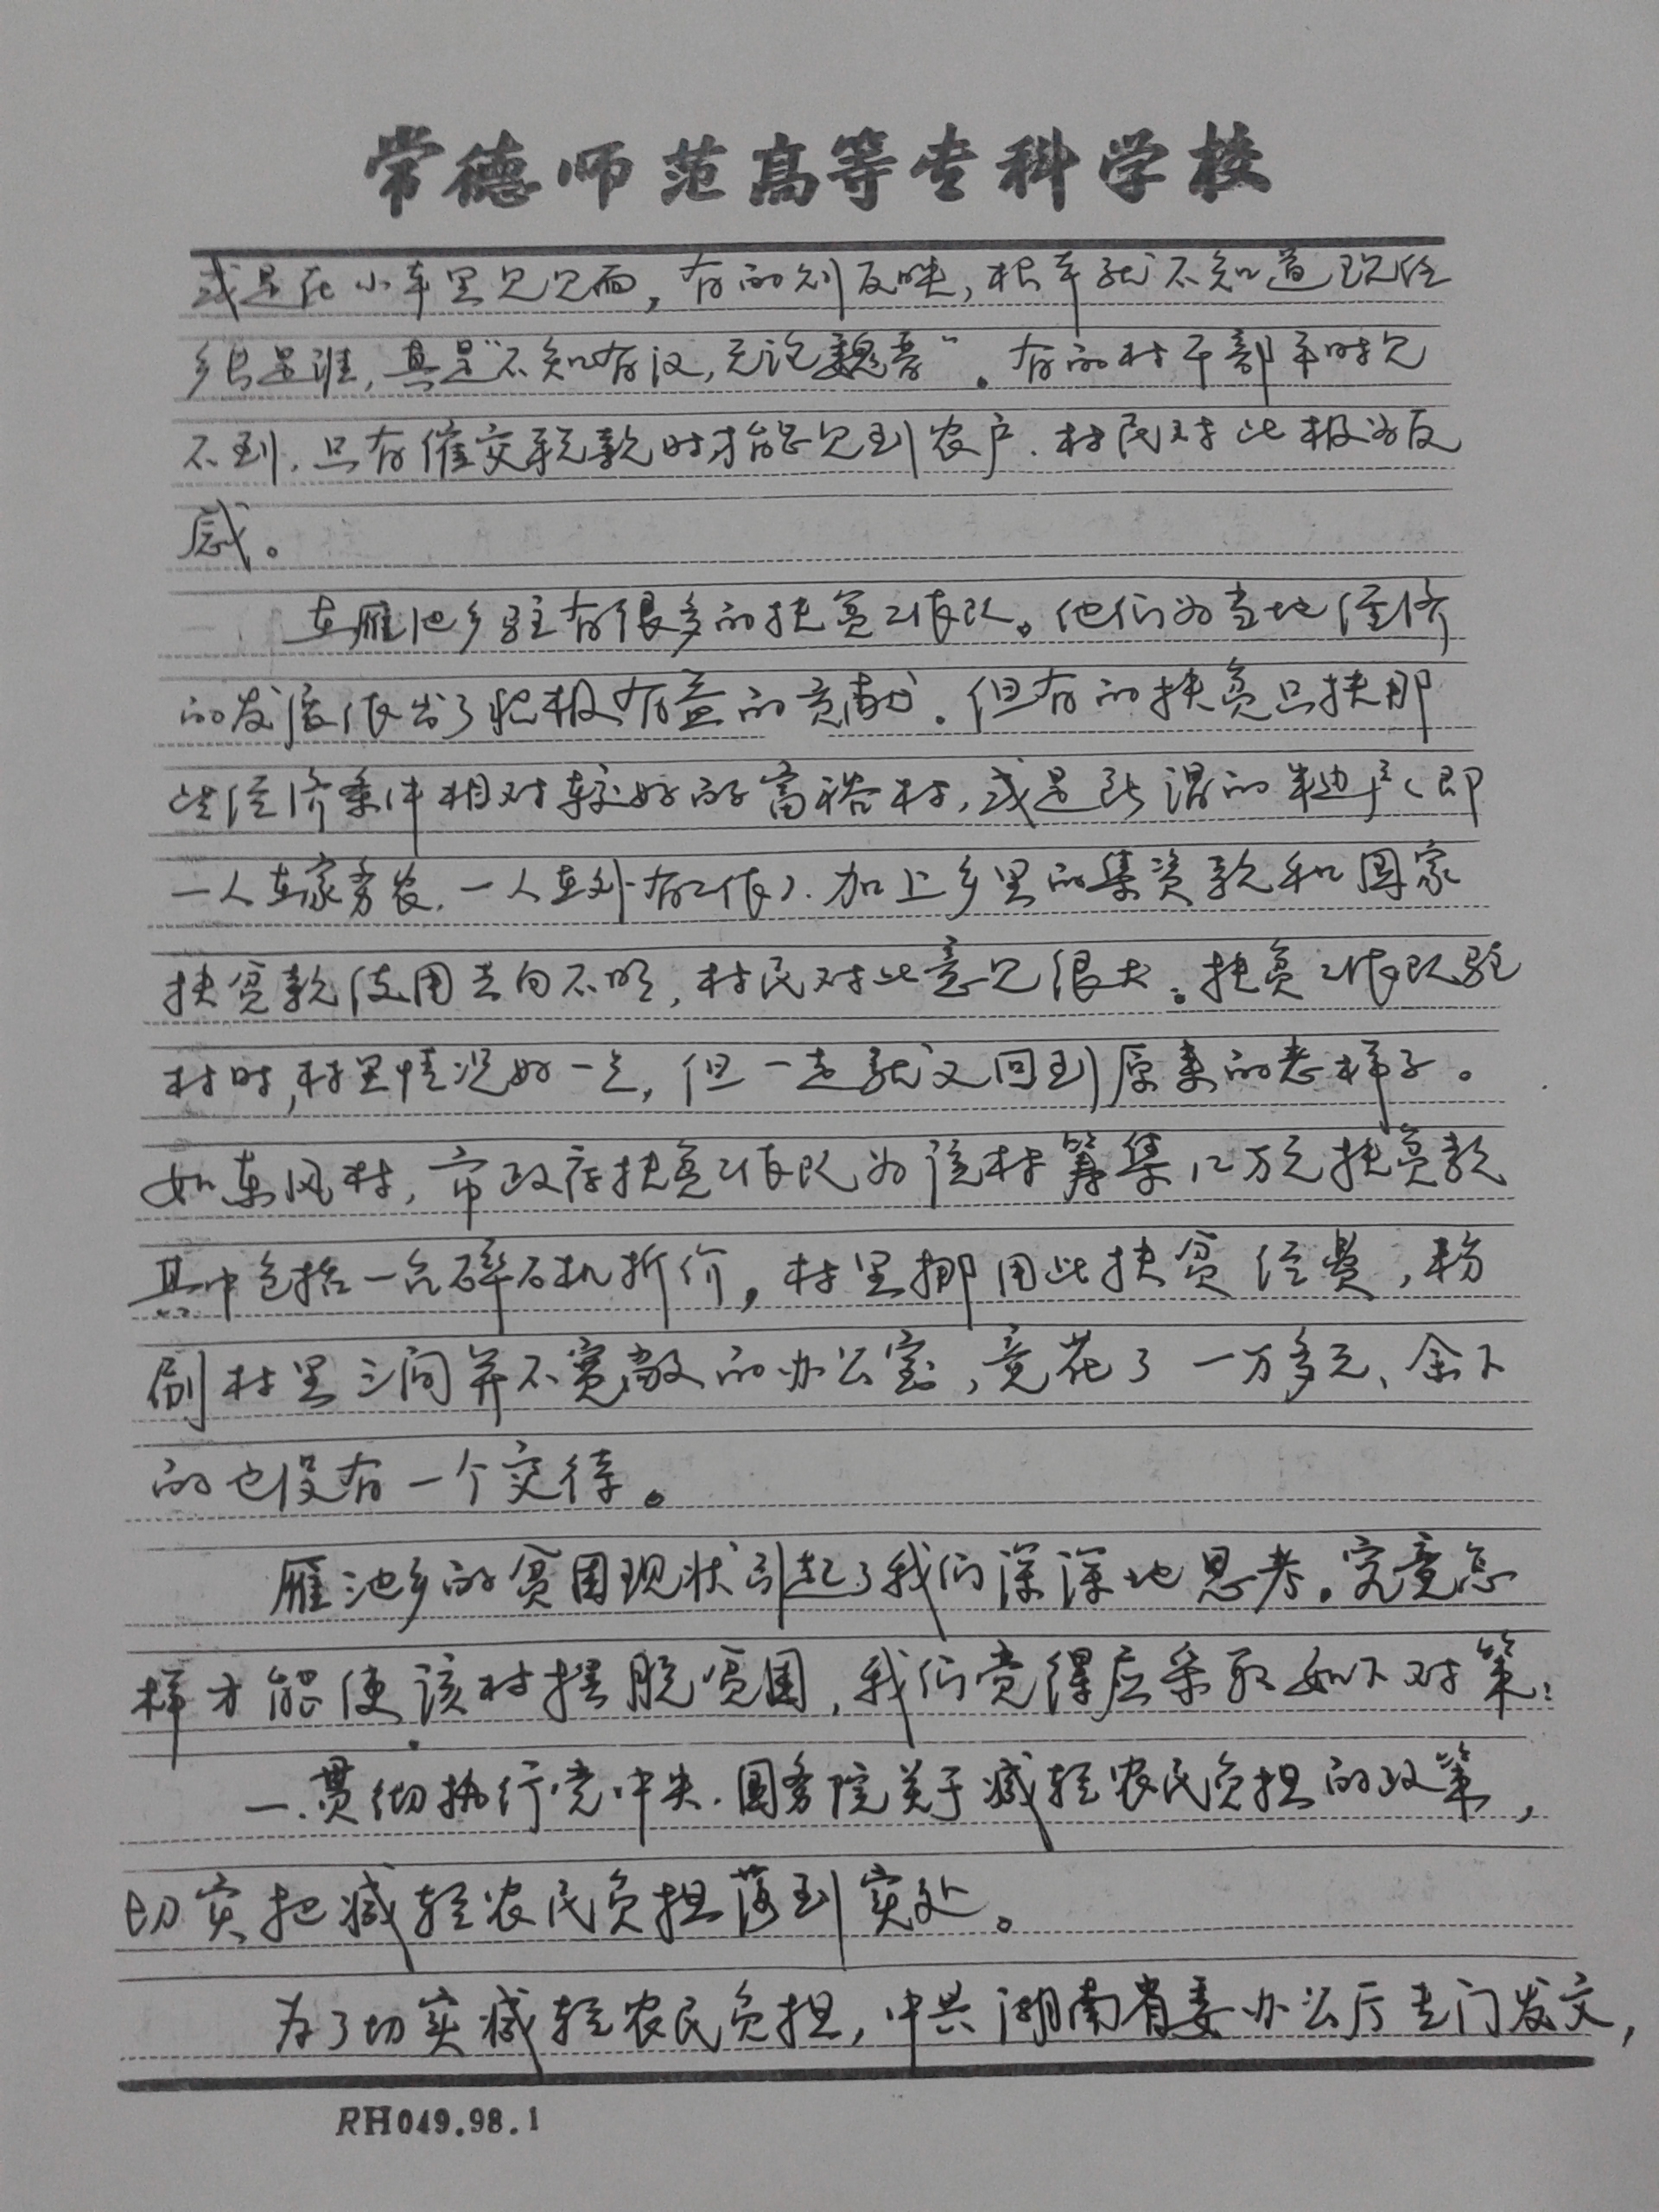 常德师范高等专科学校
或是在小车里见见面，有的则反映，根本就不知道现任
乡长是谁，真是“不知有汉，无论魏晋”。有的村干部平时见
不到，只有催交税款时才能见到农户．村民对此极为反
感。
在雁池乡驻有很多的扶贫工作队。他们为当地经济
的发展作出了积极有益的贡献．但有的扶贫只扶那
些经济条件相对较好的富裕村，或是所谓的半边户（即
一人在家务农，一人在外有工作）．加上乡里的集资款和国家
扶贫款使用去向不明，村民对此意见很大。扶贫工作队驻
村时，村里情况好一点，但一走就又回到原来的老样子。
如东风村，市政府扶贫工作队为该村筹集12万元扶贫款
其中包括一台碎石机折价，村里挪用此扶贫经费，粉
刷村里三间并不宽敞的办公室，竟花了一万多元、余下
的也没有一个交待。
雁池乡的贫困现状引起了我们深深地思考。究竟怎
样才能使该村摆脱贫困，我们觉得应采取如下对策：
一．贯彻执行党中央．国务院关于减轻农民负担的政策，
切实把减轻农民负担落到实处。
为了切实减轻农民负担，中共湖南省委办公厅专门发文，
RH049.98.1